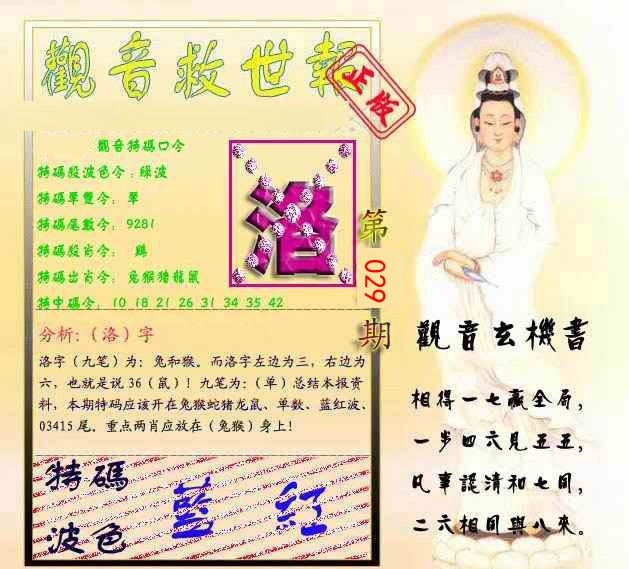 觀音救世報
正版
觀音特碼口令
特碼殺波色令:綠波
特碼單雙令: 單
特碼尾數令: 9281
特碼殺肖令: 鷄
特碼出肖令: 兔猴猪龍鼠
特中碼令: 10 18 21 26 31 34 35 42
洛
第
029
期
分析:(洛)字
洛字（九笔）为：兔和猴。而洛字左边为三，右边为
六，也就是说36（鼠）！九笔为：（单）总结本报资
料，本期特码应该开在兔猴蛇猪龙鼠、单数、蓝红波、
03415尾。重点两肖应放在（兔猴）身上！
特碼
波色
藍 紅
觀音玄機書
相得一七贏全局，
一步四六見五五，
凡事認清和七同，
二六相同與八來。